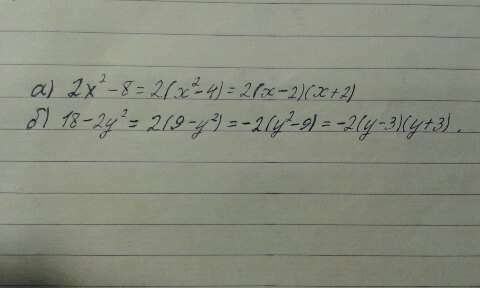 а) 2x² - 8 = 2(x² - 4) = 2(x - 2)(x + 2)
б) 18 - 2y² = 2(9 - y²) = -2(y² - 9) = -2(y - 3)(y + 3).